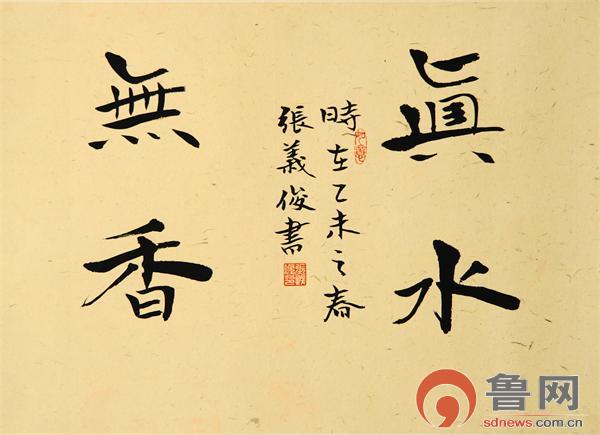 眞水
無香
時在乙未之春
張義俊書
鲁网
sdnews.com.cn